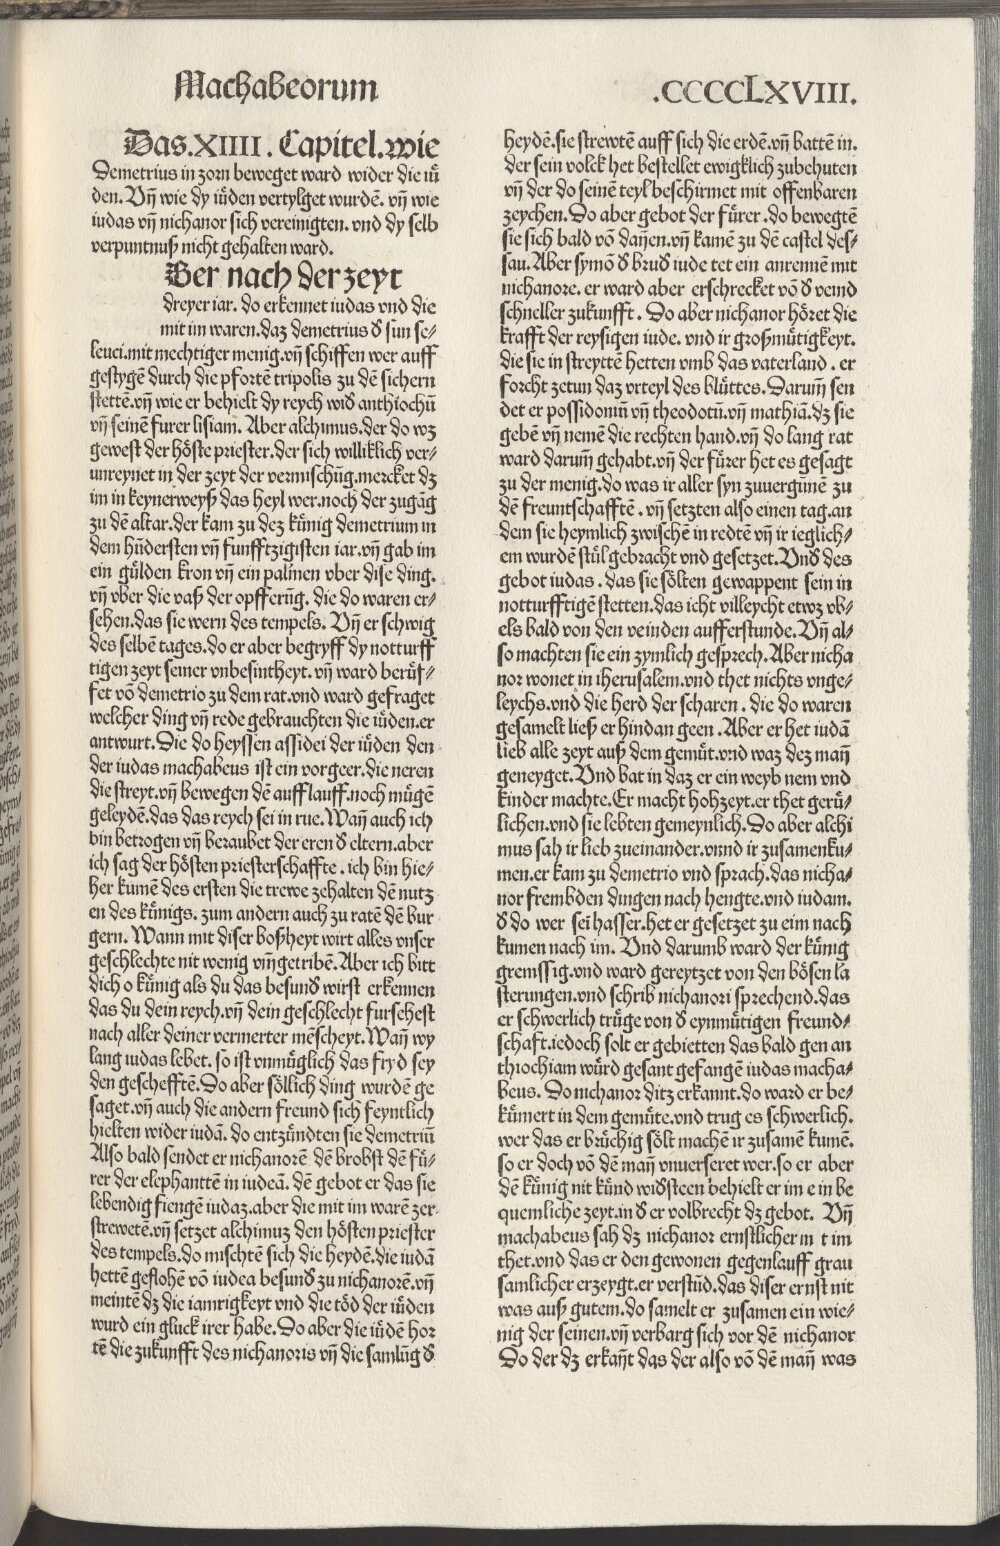 Machabeorum
.CCCCCLXVIII.
Das.XIIII. Capitel.wie
Demetrius in zorn beweget ward wider die iü
den. Vñ wie dy iüden vertylget wurdē. vñ wie
iudas vñ nichanor sich vereinigten. vnd dy selb
verpuntnuß nicht gehalten ward.
Ber nach der zeyt
dreyer iar. do erkennet iudas vnd die
mit im waren.daz demetrius d sun se-
leuci.mit mechtiger menig.vñ schiffen wer auff
gestygē durch die pfortē tripolis zu dē sichern
stettē.vñ wie er behielt dy reych wid anthiochū
vñ seinē furer lisiam. Aber alchimus.der do wz
gewest der höste priester.der sich williklich ver-
unreynet in der zeyt der vermischūg.mercket dz
im in keynerweyß das heyl wer.noch der zugāg
zu dē altar.der kam zu dez künig demetrium in
dem hūdersten vñ funfftzigisten iar.vñ gab im
ein gulden kron vñ ein palmen vber dise ding.
vñ vber die vaß der opfferūg. die do waren er-
sehen.das sie wern des tempels. Vñ er schwig
des selbē tages.do er aber begryff dy notturff
tigen zeyt seiner vnbesintheyt. vñ ward berüf-
fet vō demetrio zu dem rat.vnd ward gefraget
welcher ding vñ rede gebrauchten die iüden.er
antwurt.Die do heyssen assidei der iüden den
der iudas machabeus ist ein vorgeer.die neren
die streyt.vñ bewegen dē aufflauff.noch mügē
geleydē.das das reych sei in rue.Wañ auch ich
bin betrogen vñ beraubet der eren d eltern.aber
ich sag der hösten priesterschaffte . ich bin hie-
her kumē des ersten die trewe zehalten dē nutz
en des künigs. zum andern auch zu ratē dē bur
gern. Wann mit diser boßheyt wirt alles vnser
geschlechte nit wenig vm̄getribē.Aber ich bitt
dich o künig als du das besund wirst erkennen
das du dein reych.vñ dein geschlecht fursehest
nach aller deiner vermerter mēscheyt.Wañ wy
lang iudas lebet. so ist vnmüglich das fryd sey
den geschefftē.Do aber söllich ding wurdē ge
saget.vñ auch die andern freund sich feyntlich
hielten wider iudā. do entzündten sie demetriū
Also bald sendet er nichanorē dē brobst dē fü-
rer der elephanttē in iudeā. dē gebot er das sie
lebendig fiengē iudaz.aber die mit im warē zer-
strewetē.vñ setzet alchimuz den hösten priester
des tempels.do mischtē sich die heydē.die iudā
hettē geflohē vō iudea besund zu nichanorē.vñ
meintē dz die iamrigkeyt vnd die töd der iüden
wurd ein gluck irer habe.Do aber die iüdē hor
tē die zukunfft des nichanoris vñ die samlūg d
heydē.sie strewtē auff sich die erdē.vñ battē in.
der sein volck het bestellet ewigklich zubehuten
vñ der do seinē teyl beschirmet mit offenbaren
zeychen.Do aber gebot der fürer .do bewegtē
sie sich bald vō dañen.vñ kamē zu dē castel des-
sau.Aber symō d brud iude tet ein anrennē mit
nichanore. er ward aber erschrecket vō d veind
schneller zukunfft . Do aber nichanor höret die
krafft der reysigen iude. vnd ir großmütigkeyt.
die sie in streyttē hetten vmb das vaterland . er
forcht zetun daz vrteyl des blüttes.Darum̄ sen
det er possidoniū vñ theodotū.vñ mathiā.dz sie
gebē vñ nemē die rechten hand.vñ do lang rat
ward darum̄ gehabt.vñ der fürer het es gesagt
zu der menig.do was ir aller syn zuuergūnē zu
dē freuntschafftē . vñ setzten also einen tag.an
dem sie heymlich zwischē in redtē vñ ir ieglich-
em wurdē stül gebracht vnd gesetzet.Vnd des
gebot iudas . das sie sölten gewappent sein in
notturfftigē stetten.das icht villeycht etwz vb-
els bald von den veinden aufferstunde.Vñ al-
so machten sie ein zymlich gesprech.Aber nicha
nor wonet in iherusalem.vnd thet nichts vnge-
leychs.vnd die herd der scharen . die do waren
gesamelt ließ er hindan geen .Aber er het iudā
lieb alle zeyt auß dem gemüt.vnd waz dez mañ
geneyget.Vnd bat in daz er ein weyb nem vnd
kinder machte.Er macht hohzeyt.er thet gerü-
lichen.vnd sie lebten gemeynlich.Do aber alchi
mus sah ir lieb zueinander.vnnd ir zusamenku-
men.er kam zu demetrio vnd sprach.das nicha-
nor frembden dingen nach hengte.vnd iudam.
d do wer sei hasser.het er gesetzet zu eim nach
kumen nach im. Vnd darumb ward der künig
gremssig.vnd ward gereytzet von den bösen la
sterungen.vnd schrib nichanori sprechend.das
er schwerlich trüge von d eynmütigen freund-
schaft.iedoch solt er gebietten das bald gen an
thiochiam würd gesant gefangē iudas macha-
beus. Do nichanor ditz erkannt.do ward er be-
kümert in dem gemüte.vnd trug es schwerlich.
wer das er brüchig sölt machē ir zusamē kumē.
so er doch vō dē mañ vnuerseret wer.so er aber
dē künig nit künd widsteen behielt er im ein be
quemliche zeyt.in d er volbrecht dz gebot. Vñ
machabeus sah dz nichanor ernstlicher m t im
thet.vnd das er den gewonen gegenlauff grau
samlicher erzeygt.er verstūd.das diser ernst nit
was auß gutem.do samelt er zusamen ein wie-
nig der seinen.vñ verbarg sich vor dē nichanor
Do der dz erkañt das der also vō dē mañ was